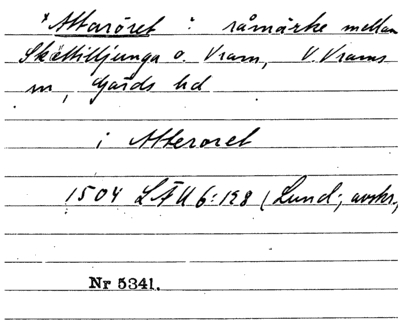 *Attaröret : råmärke mellan
Skättilljunga o. Vram, V. Vrams
sn, Gärds hd
i Atteroret
1504 LÄU 6:128 (Lund; avskr.)
Nr 5341.